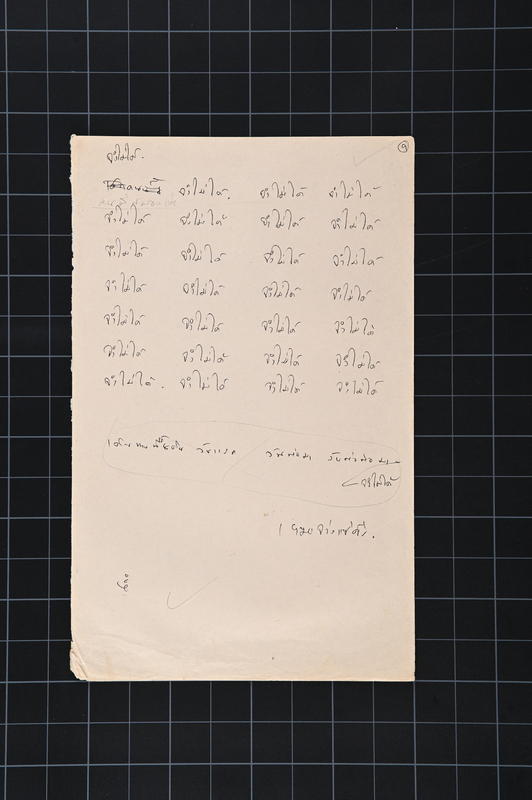 ๑
จำไม่ได้
จำไม่ได้. จำไม่ได้ จำไม่ได้
จำไม่ได้ จำไม่ได้ จำไม่ได้ จำไม่ได้
จำไม่ได้ จำไม่ได้ จำไม่ได้ จำไม่ได้
จำไม่ได้ จำไม่ได้ จำไม่ได้ จำไม่ได้
จำไม่ได้ จำไม่ได้ จำไม่ได้ จำไม่ได้
จำไม่ได้ จำไม่ได้ จำไม่ได้ จำไม่ได้
จำไม่ได้. จำไม่ได้ จำไม่ได้ จำไม่ได้
วันแรก วันต่อมา
จำไม่ได้